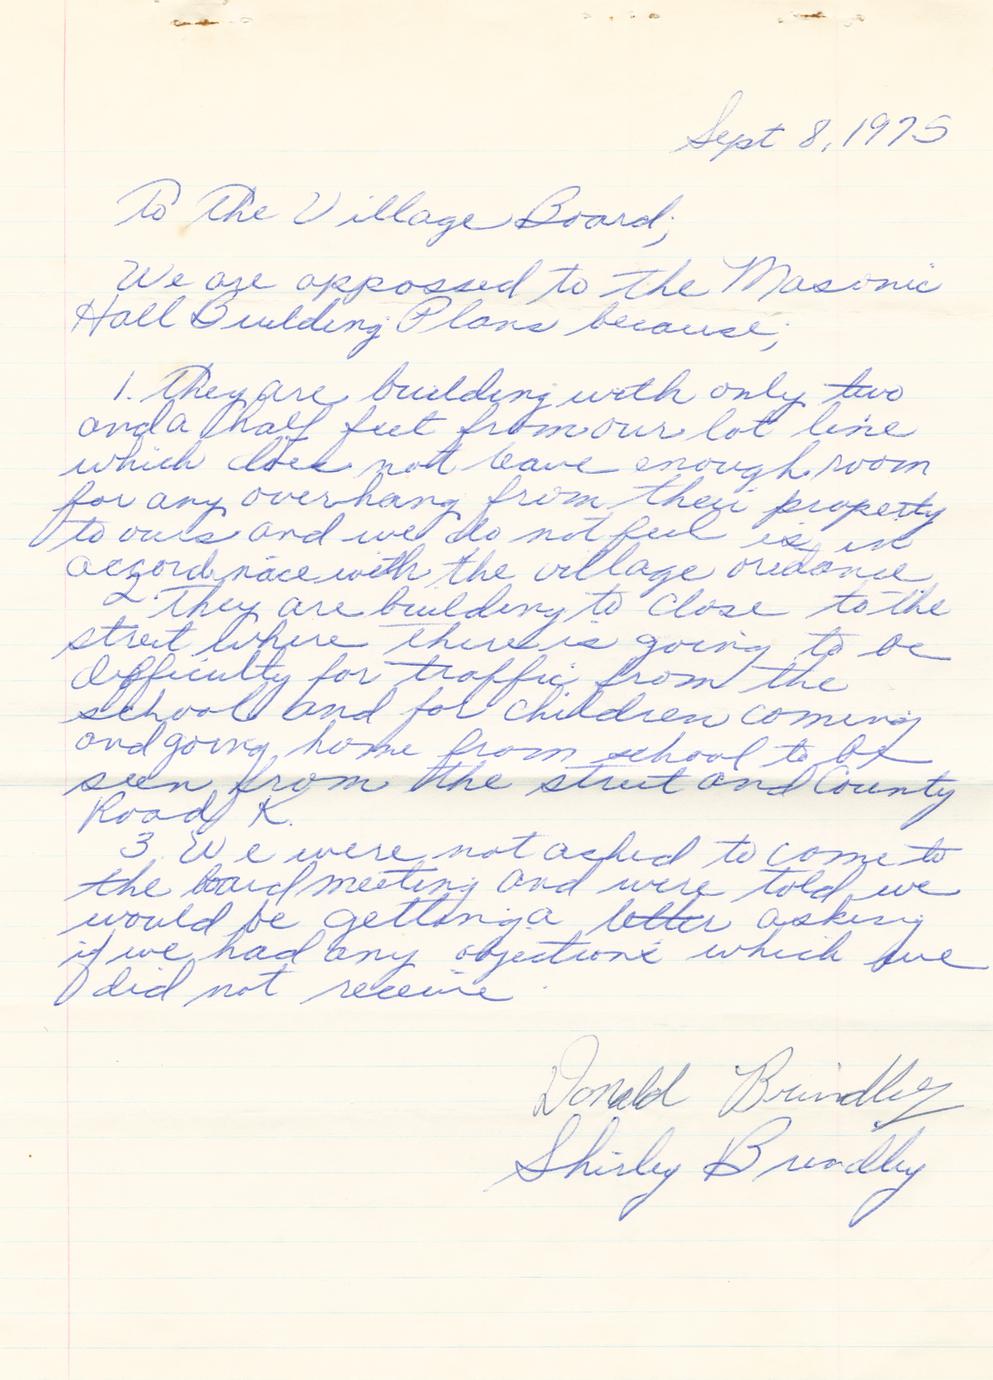 Sept 8, 1975
To The Village Board;
We are appossed to the Masonic
Hall Building Plans because;
1. They are building with only two
and a half feet from our lot line
which does not leave enough room
for any overhang from their property
to ours and we do not feel is in
accordnace with the village oridance
2. They are building to close to the
street where there is going to be
difficulty for traffic from the
school and for children coming
and going home from school to be
seen from the street and County
Road K.
3. We were not asked to come to
the board meeting and were told we
would be getting a letter asking
if we had any objections which we
did not receive.
Donald Brindley
Shirley Brindley